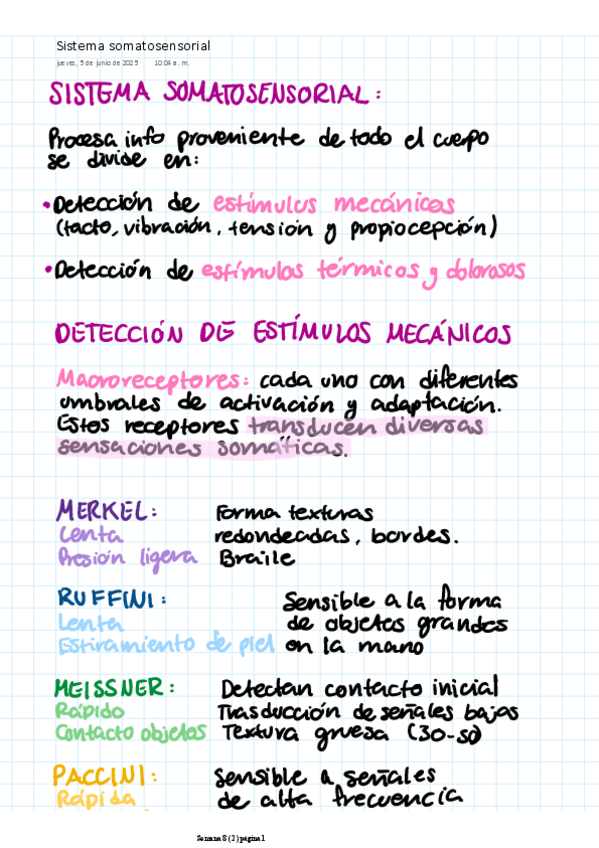 Sistema somatosensorial
jueves, 5 de junio de 2025 10:04 a. m.
SISTEMA SOMATOSENSORIAL:
Procesa info proveniente de todo el cuerpo
se divide en:
•Detección de estímulos mecánicos
(tacto, vibración, tensión y propiocepción)
•Detección de estímulos térmicos y dolorosos
DETECCIÓN DE ESTÍMULOS MECÁNICOS
Macroreceptores: cada uno con diferentes
umbrales de activación y adaptación.
Estos receptores transducen diversas
sensaciones somáticas.
MERKEL: Forma texturas
Lenta redondeadas, bordes.
Presión ligera Braile
RUFFINI: Sensible a la forma
Lenta de objetos grandes
Estiramiento de piel en la mano
MEISSNER: Detectan contacto inicial
Rápido Trasducción de señales bajas
Contacto objetos Textura gruesa (30-50)
PACCINI: Sensible a señales
Rápida de alta frecuencia
Semana 8 (2) página 1